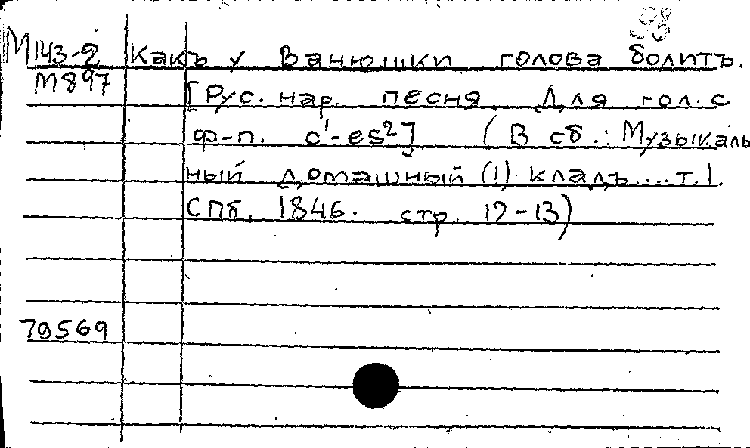 М143-2 Какъ у Ванюшки голова болитъ.
М897
[Рус. нар. песня. Для гол. с
ф-п. c¹-es²] (В сб.: Музыкаль
ный домашный (1) кладъ.... т.1.
СПб, 1846. стр. 12-13)
79569